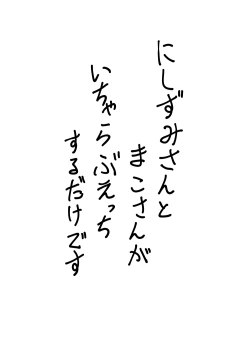 にしずみさんと
まこさんが
いちゃらぶえっち
するだけです